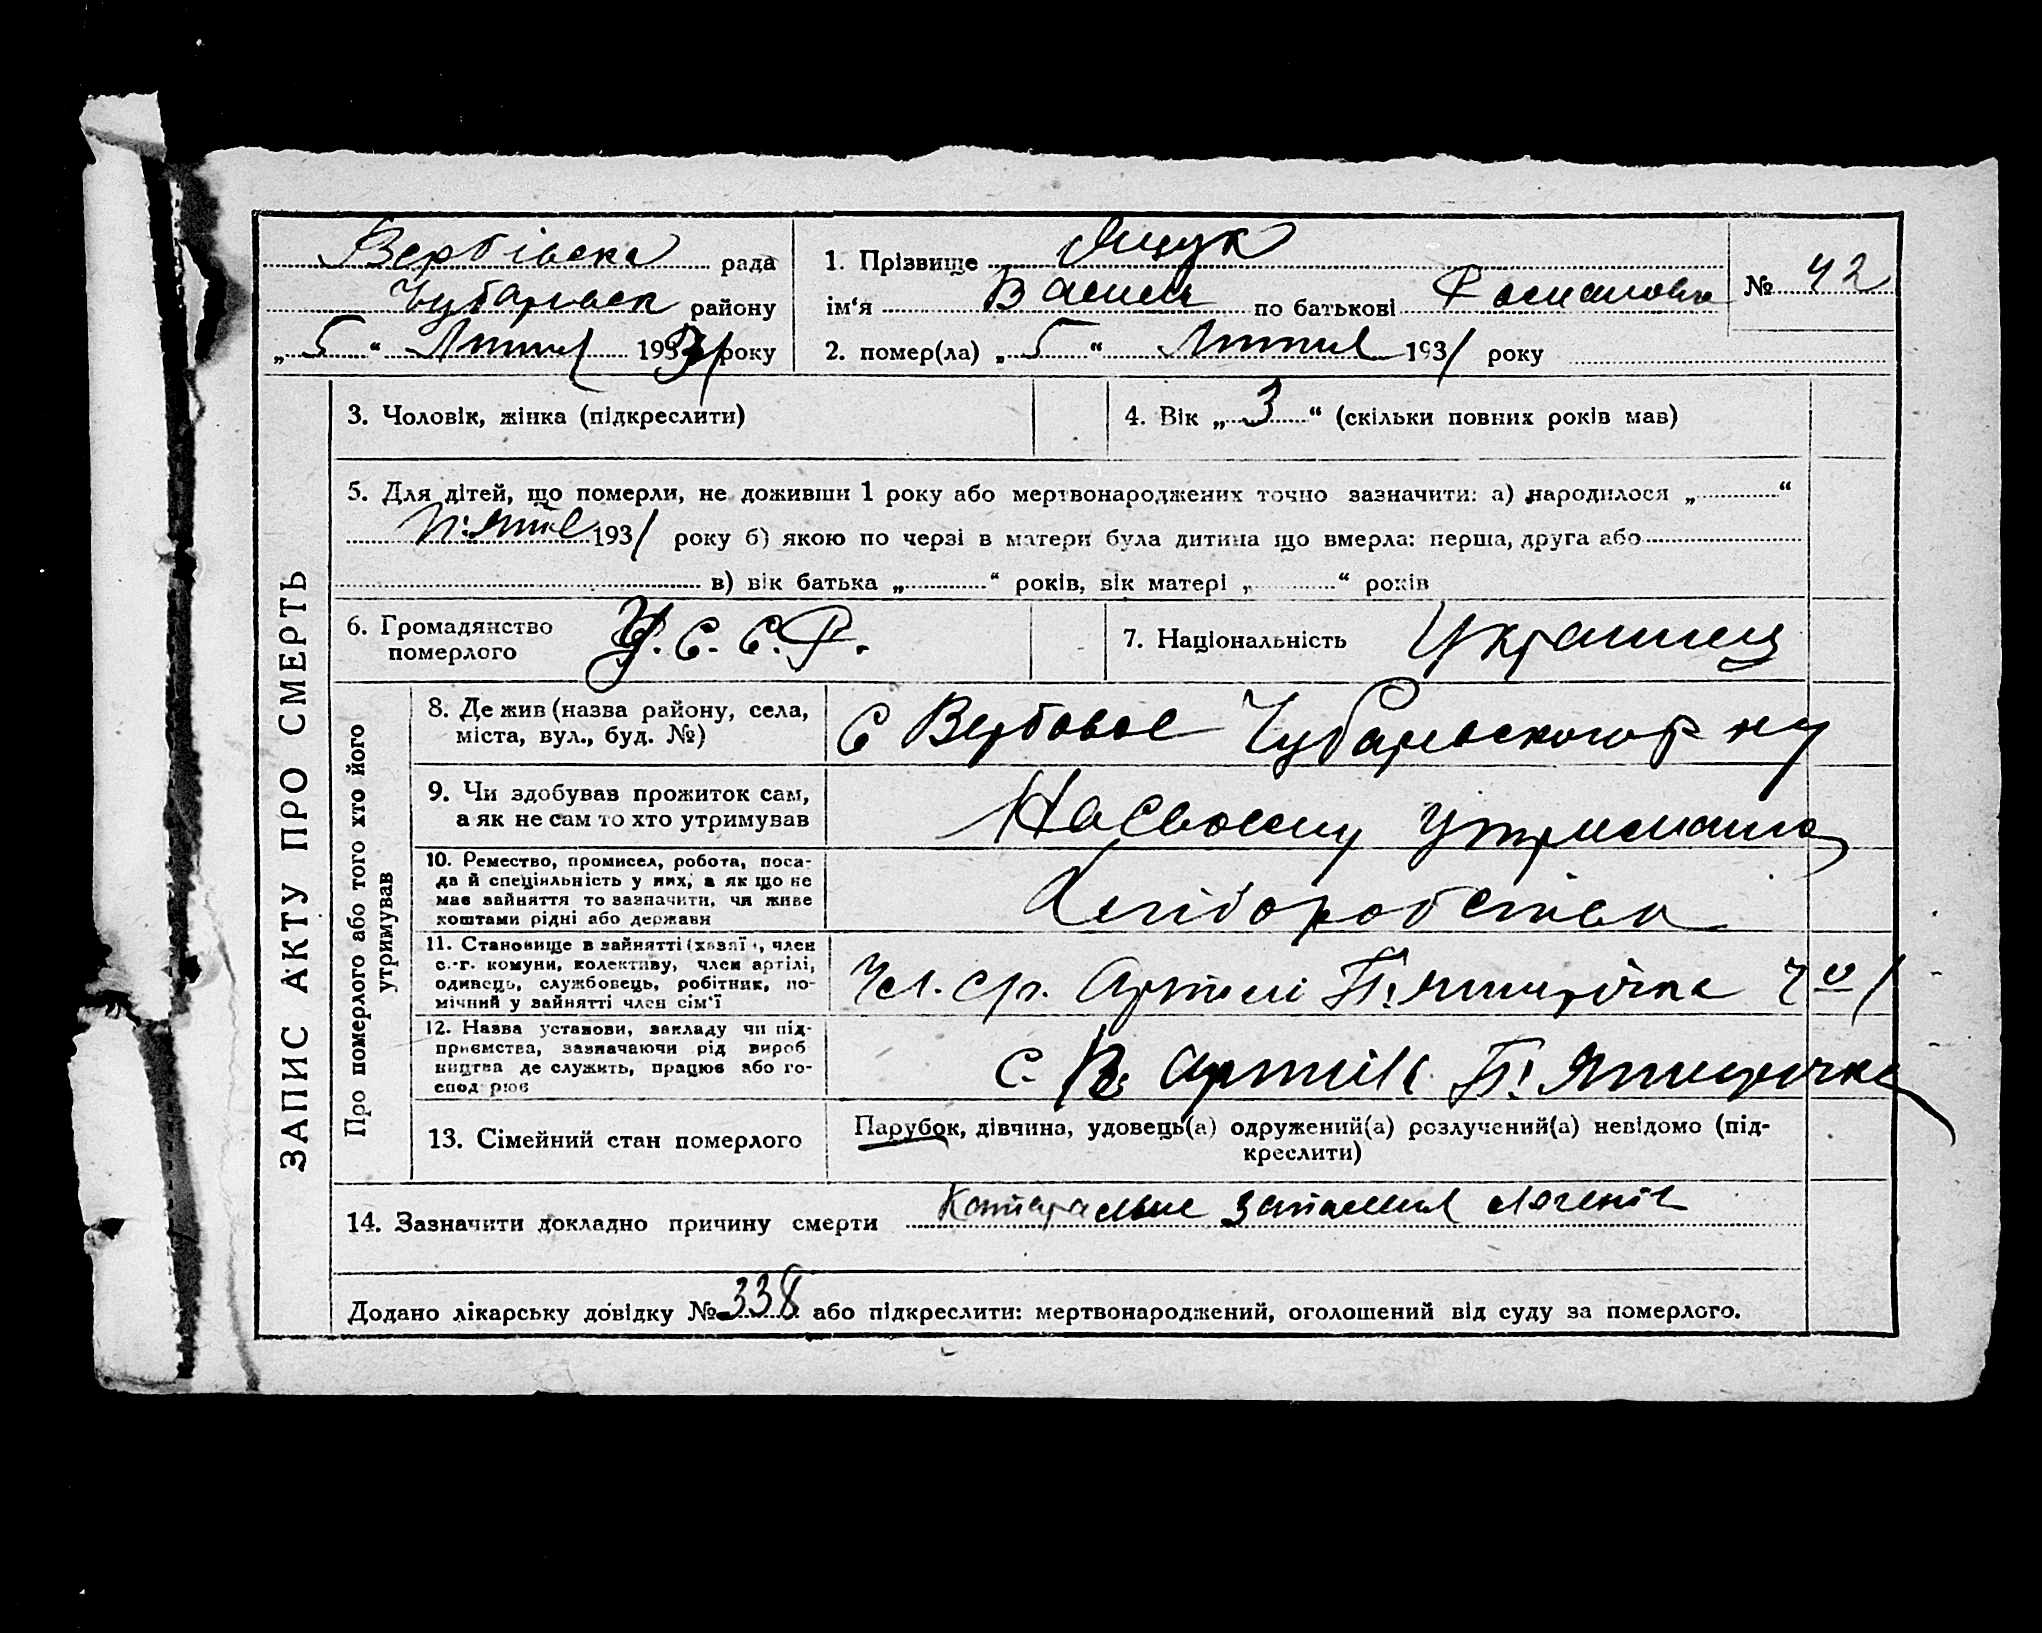 ЗАПИС АКТУ ПРО СМЕРТЬ
Вербівска рада
Чубарівск району
„ 5 “ Липня 1931 року
1. Прізвище Ящук
ім‘я Василь по батькові Романович
№ 42
2. помер(ла) „ 5 “ Липня 1931 року
3. Чоловік, жінка (підкреслити)
4. Вік „ 3 “ (скільки повних років мав)
5. Для дітей, що померли, не доживши 1 року або мертвонароджених точно зазначити: а) народилося „ “
1931 року б) якою по черзі в матери була дитина що вмерла: перша, друга або
в) вік батька „ “ років, вік матері „ “ років
6. Громадянство
померлого
У. С. С. Р.
7. Національність Украинец
Про померлого або того хто його
утримував
8. Де жив (назва району, села,
міста, вул., буд. №)
С Вербовое Чубаревского р ну
9. Чи здобував прожиток сам,
а як не сам то хто утримував
На Своему утримании
10. Ремество, промисел, робота, поса-
да й спеціяльність у них, а як що не
має зайняття то зазначити, чи живе
коштами рідні або держави
Хліборобство
11. Становище в зайнятті (хазяї , член
с.-г. комуни, колективу, член артілі,
одивець, службовець, робітник, по-
мічний у зайнятті член сім‘ї
Чл. ср. Артілі П‘ятирічка
12. Назва установи, закладу чи під-
приємства, зазначаючи рід вироб
ництва де служить, працює або го-
спод рює
С. В. Артіль П‘ятирічка
13. Сімейний стан померлого
Парубок, дівчина, удовець(а) одружений(а) розлучений(а) невідомо (під-
креслити)
14. Зазначити докладно причину смерти Катаральне запалення легенів
Додано лікарську довідку № 338 або підкреслити: мертвонароджений, оголошений від суду за померлого.